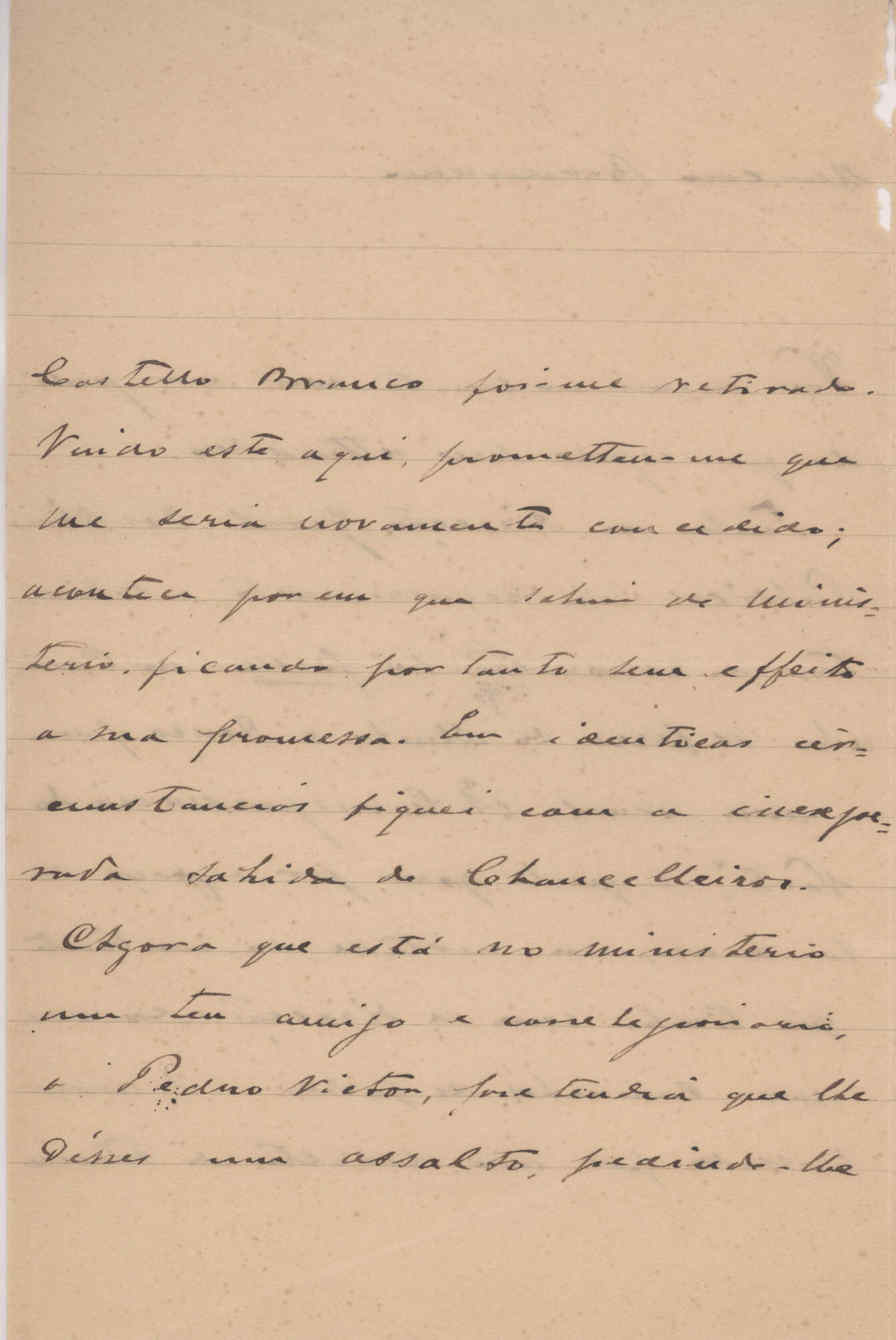 Castello Branco foi-me retirado.
Vindo este aqui, prometteu-me que
me seria novamente concedido;
acontece porem que sahiu do minis=
terio, ficando por tanto sem effeito
a sua promessa. Em identicas cir=
cunstancias fiquei com a inespe=
rada sahida de Chancelleiros.
Agora que está no ministerio
um teu amigo e correlegionario,
o Pedro Victor, pretendia que lhe
désses um assalto, pedindo-lhe